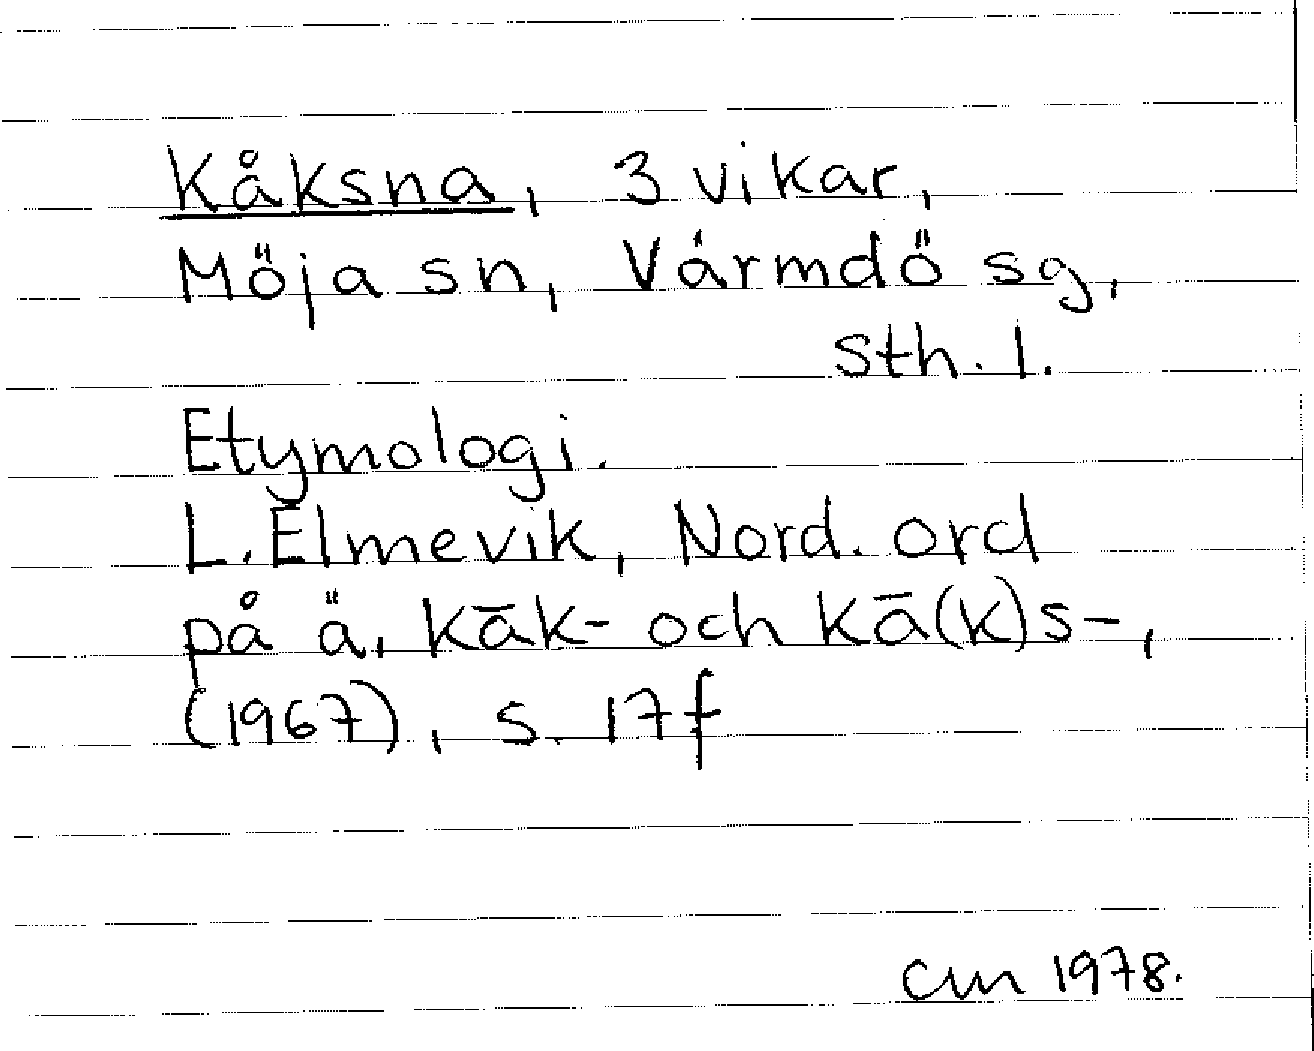 Kåksna, 3 vikar,
Möja sn, Värmdö sg,
Sth. l.
Etymologi.
L. Elmevik, Nord. ord
på ä, kāk- och kā(k)s-,
(1967), s. 17 f
CM 1978.